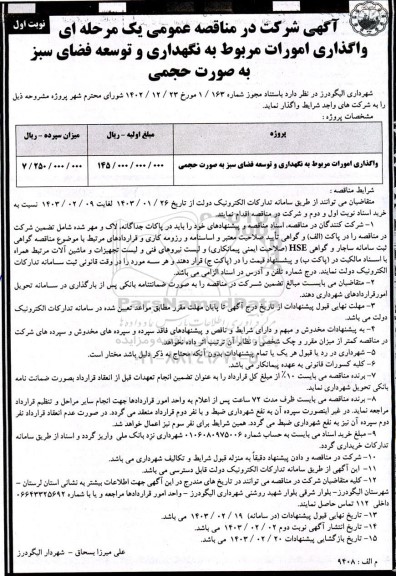 نوبت اول
آگهی شرکت در مناقصه عمومی یک مرحله ای
واگذاری امورات مربوط به نگهداری و توسعه فضای سبز
به صورت حجمی
شهرداری الیگودرز در نظر دارد باستناد مجوز شماره ۱۶۳/ ۱ مورخ ۲۳ / ۱۲ / ۱۴۰۲ شورای محترم شهر پروژه مشروحه ذیل
را به شرکت های واجد شرایط واگذار نماید.
مشخصات پروژه :
پروژه
مبلغ اولیه – ریال
میزان سپرده – ریال
واگذاری امورات مربوط به نگهداری و توسعه فضای سبز به صورت حجمی
۱۴۵/۰۰۰/۰۰۰/۰۰۰
۷/۲۵۰/۰۰۰/۰۰۰
شرایط مناقصه :
متقاضیان می توانند از طریق سامانه تدارکات الکترونیک دولت از تاریخ ۲۶ / ۰۱ / ۱۴۰۳ لغایت ۰۹ / ۰۲ / ۱۴۰۳ نسبت به
خرید اسناد نوبت اول و دوم و شرکت در مناقصه اقدام نمایند.
۱– شرکت کنندگان در مناقصه، اسناد مناقصه و پیشنهادهای خود را باید در پاکات جداگانه، لاک و مهر شده شامل تضمین شرکت
در مناقصه را در پاکت (الف) و گواهی تأیید صلاحیت معتبر و اساسنامه و رزومه کاری و قراردادهای مرتبط با موضوع مناقصه گواهی
ثبت سامانه ساجار و گواهی HSE (صلاحیت ایمنی پیمانکاری) و لیست نیروهای فنی و لیست تجهیزات و ماشین آلات مرتبط همراه
با اسناد مالکیت در (پاکت ب) و پیشنهاد قیمت را در (پاکت ج) قرار دهند و هر سه مورد را در وقت قانونی ثبت سامانه تدارکات
الکترونیک دولت نمایند. درج شماره تلفن و آدرس در اسناد الزامی می باشد.
۲– متقاضیان می بایست مبالغ تضمین شرکت در مناقصه را به صورت ضمانتنامه بانکی پس از بارگذاری در سامانه تحویل
امورقراردادهای شهرداری دهند.
۳– مهلت نهایی قبول پیشنهادات از تاریخ درج آگهی تا پایان مهلت مقرر مطابق مواعد تعیین شده در سامانه تدارکات الکترونیک
دولت می باشد.
۴– به پیشنهادات مخدوش و مبهم و دارای شرایط و ناقص و پیشنهادهای فاقد سپرده و سپرده های مخدوش و سپرده های شرکت
در مناقصه کمتر از میزان مقرر و چک شخصی و نظایر آن ترتیب اثر داده نخواهد
۵– شهرداری در رد یا قبول هر یک یا تمام پیشنهادات بدون آنکه محتاج به ذکر دلیل باشد مختار است.
۶– کلیه کسورات قانونی به عهده پیمانکار می باشد.
۷– برنده مناقصه می بایست ۱۰٪ از مبلغ کل قرارداد را به عنوان تضمین انجام تعهدات قبل از انعقاد قرارداد بصورت ضمانت نامه
بانکی تحویل شهرداری نماید.
۸– برنده مناقصه می بایست ظرف مدت ۷۲ ساعت پس از اعلام به واحد امور قراردادها جهت انجام سایر مراحل و تنظیم قرارداد
مراجعه نماید. در غیر اینصورت سپرده آن به نفع شهرداری ضبط و با نفر دوم قرارداد منعقد می گردد. در صورت عدم انعقاد قرارداد نفر
دوم سپرده آن نیز به نفع شهرداری ضبط می گردد. همین شرایط برای نفر سوم نیز اعمال خواهد شد.
۹– مبلغ خرید اسناد می بایست به حساب شماره ۰۱۰۶۰۸۰۹۷۵۰۰۶ شهرداری نزد بانک ملی واریز گردد و اسناد از طریق سامانه
تدارکات خریداری گردد.
۱۰– شرکت در مناقصه و دادن پیشنهاد دقیقاً به منزله قبول شرایط و تکالیف شهرداری می باشد.
۱۱– این آگهی از طریق سامانه تدارکات الکترونیک دولت قابل دسترسی می باشد.
۱۲– کلیه متقاضیان شرکت در مناقصه می توانند در تاریخ های مندرج در این آگهی جهت اطلاعات بیشتر به نشانی استان لرستان –
شهرستان الیگودرز– بلوار شرقی بلوار شهید روشنی شهرداری الیگودرز – واحد امور قراردادها مراجعه و یا با شماره ۰۶۶۴۳۳۲۵۶۹۲
داخلی ۱۱۲ تماس حاصل نمایند.
۱۳– تاریخ نهایی قبول پیشنهادات (در سامانه) ۱۹ / ۰۲ / ۱۴۰۳ می باشد.
۱۴– تاریخ انتشار آگهی نوبت دوم ۰۲ / ۰۲ / ۱۴۰۳ می باشد.
۱۵– تاریخ بازگشایی پیشنهادات ۲۰ / ۰۲ / ۱۴۰۳ می باشد.
علی میرزا بسحاق – شهردار الیگودرز
م الف : ۹۴۰۸